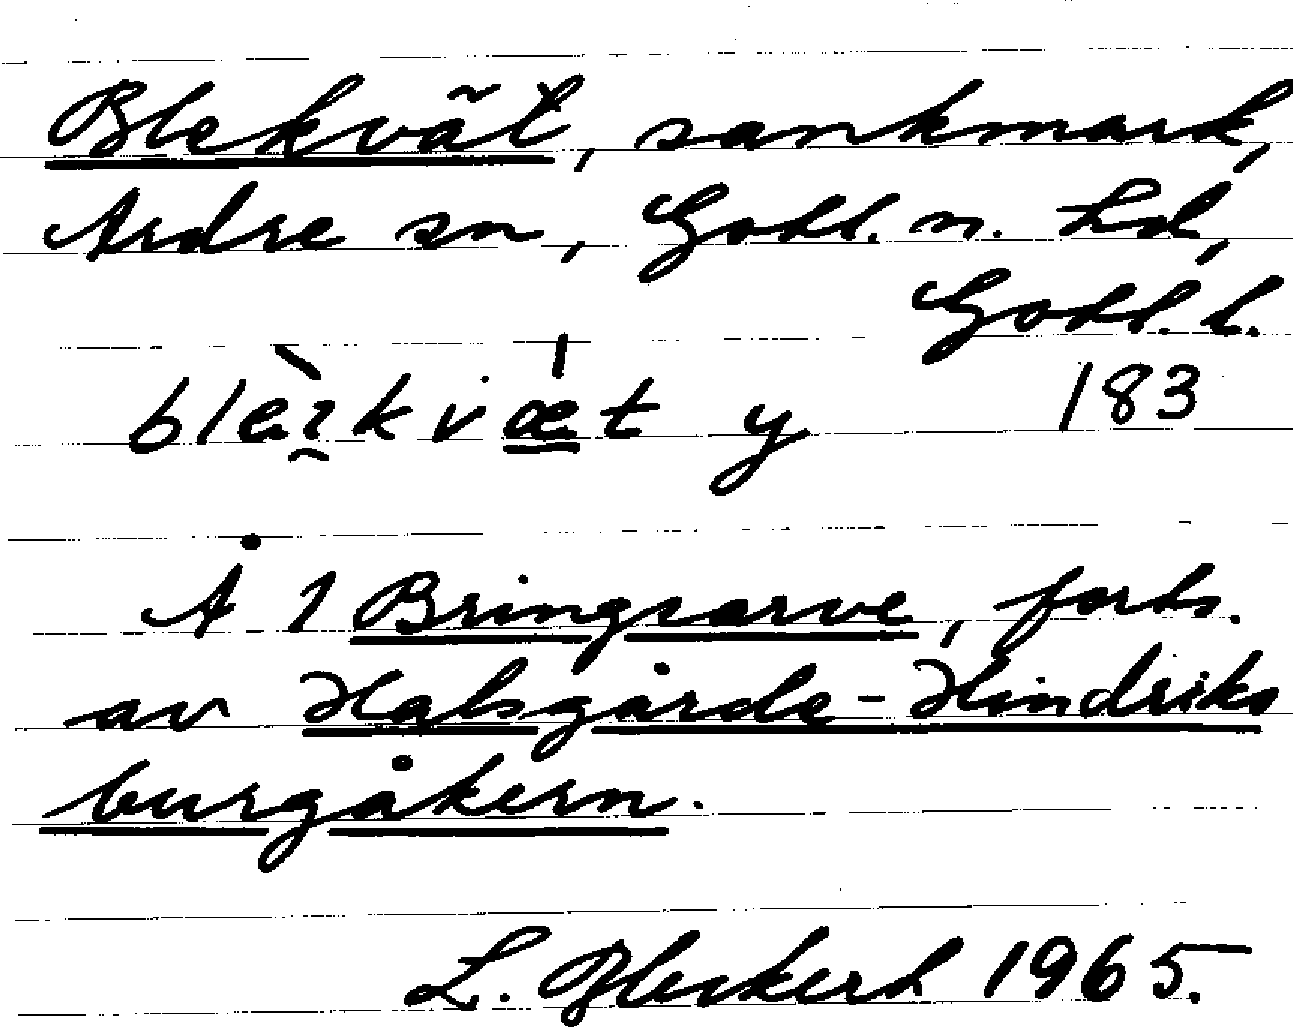 Blekvät, sankmark,
Ardre sn, Gotl. n. hd,
Gotl. l.
blèɪkvæt y 183
Å 1 Bringsarve, forts.
av Halsgårde-Hindriks
burgåkern.
L. 1965.